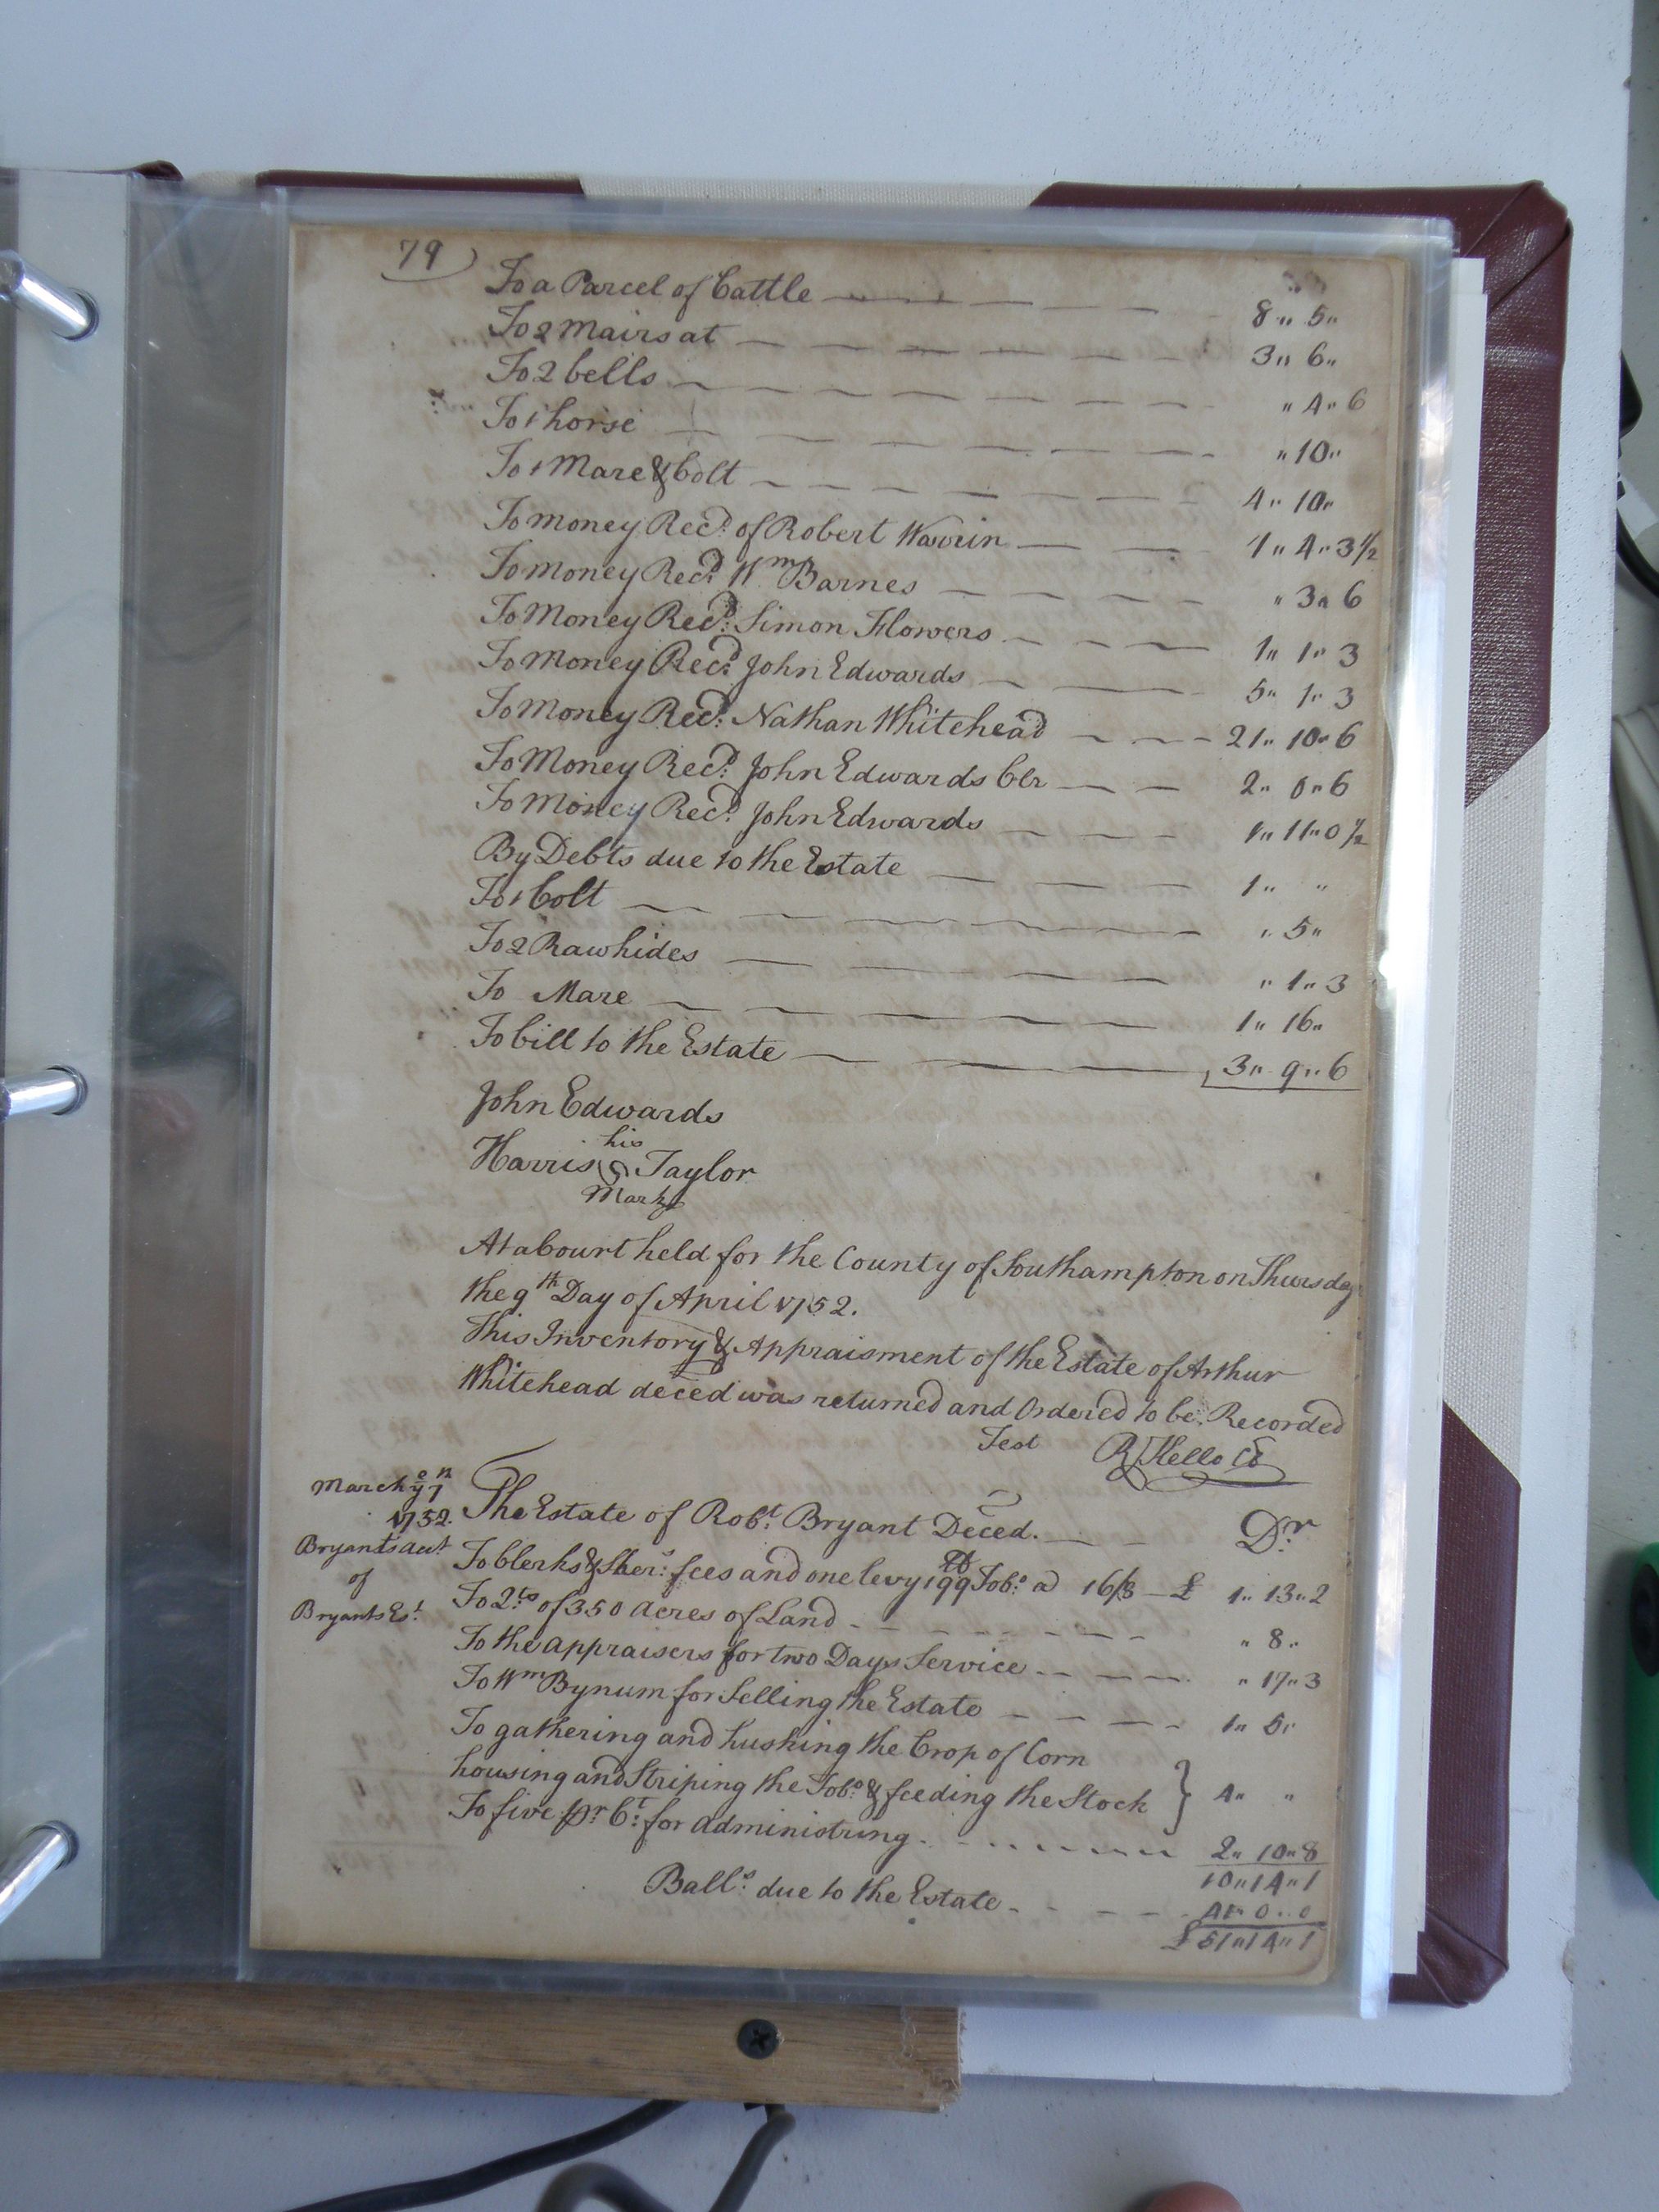 79)
To a Parcel of Cattle — — — — 8 " 5 "
To 2 Mairs at — — — — — — 3 " 6 "
To 2 bells — — — — — — — " 4 " 6
To 1 horse — — — — — — — " 10 "
To 1 Mare & Colt — — — — — — 4 " 10 "
To money Recd. of Robert Warrin — — 1 " 4 " 3 1/2
To money Recd. Wm Barnes — — — — " 3 " 6
To Money Recd. Simon Flowers — — — 1 " 1 " 3
To Money Recd. John Edwards — — — 5 " 1 " 3
To Money Recd. Nathan Whitehead — — — 21 " 10 " 6
To Money Recd. John Edwards Clr — — 2 " 0 " 6
To Money Recd. John Edwards — — — 1 " 11 " 0 1/2
By Debts due to the Estate — — — 1 " "
To 1 Colt — — — — — — " 5 "
To 2 Rawhides — — — — " 1 " 3
To Mare — — — — — 1 " 16 "
To bill to the Estate — — — 3 " 9 " 6
John Edwards
his
Harris Taylor
Mark
At a Court held for the County of Southampton on Thursday
the 9th Day of April 1752.
This Inventory & Appraisment of the Estate of Arthur
Whitehead deced was returned and Ordered to be Recorded
Test R Kello CC
March ye 7
1752.
Bryants act
of
Bryants Est.
The Estate of Robt. Bryant Deced. — — Dr
To Clerks & Sher.s fees and one levy 199 lb Tobo. a 16/8 — £ 1 " 13 " 2
To 2 ts of 350 Acres of Land — — — " 8 "
To the Appraisers for two Days Service — — " 17 " 3
To Wm Bynum for Selling the Estate — — — 1 " 5 "
To gathering and husking the Crop of Corn
housing and Striping the Tobo. & feeding the Stock } 4 " "
To five pr Ct. for Administring — — — 2 " 10 " 8
10 " 14 " 1
Balls. due to the Estate — — — 41 " 0 " 0
£ 51 " 14 " 1